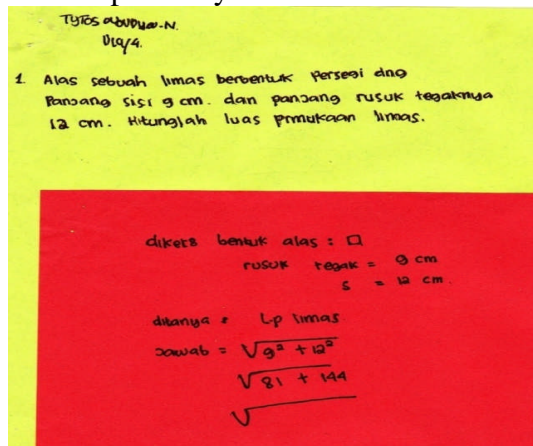 1. Alas sebuah limas berbentuk persegi dng
Panjang sisi 9 cm. dan panjang rusuk tegaknya
12 cm. Hitunglah luas prmukaan limas.
diket : bentuk alas : □
rusuk tegak = 9 cm
s = 12 cm.
ditanya : Lp limas
Jawab = √9² + 12²
√81 + 144
√